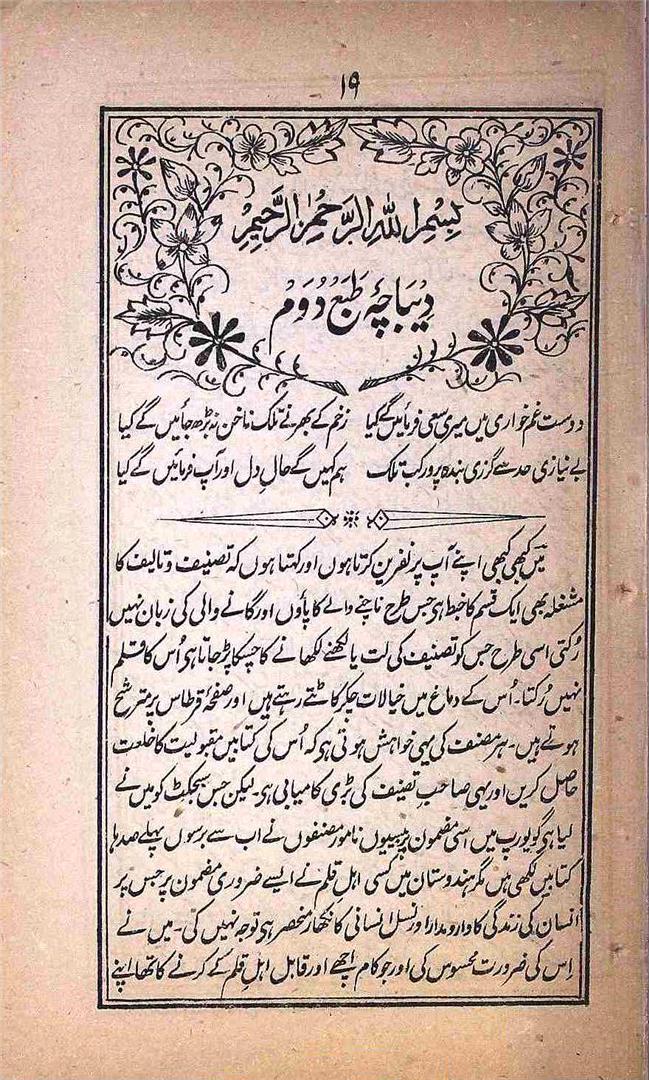 ۱۹
بِسْمِ اللهِ الرَّحْمٰنِ الرَّحِيْمِ
دیباچۂ طبع دُوَم
دوست غم خواری میں میری سعی فرمائیں گے کیا زخم کے بھرنے تلک ناخن نہ بڑھ جائیں گے کیا
بے نیازی حد سے گزری بندہ پرور کب تلک ہم کہیں گے حالِ دل اور آپ فرمائیں گے کیا
میں کبھی کبھی اپنے آپ پر نفرین کرتا ہوں اور کہتا ہوں کہ تصنیف و تالیف کا
مشغلہ بھی ایک قسم کا خبط ہی جس طرح ناچنے والے کا پاؤں اور گانے والی کی زبان نہیں
رُکتی اسی طرح جس کو تصنیف کی لت یا لکھنے لکھانے کا چسکا پڑ جاتا ہی اُس کا قلم
نہیں رُکتا۔ اُس کے دماغ میں خیالات چکر کاٹتے رہتے ہیں اور صفحۂ قرطاس پر مترشح
ہوتے ہیں۔ ہر مصنف کی یہی خواہش ہوتی ہی کہ اُس کی کتابیں مقبولیت کا خلعت
حاصل کریں اور یہی صاحبِ تصنیف کی بڑی کامیابی ہی۔ لیکن جس سبجکٹ کو میں نے
لیا ہی گو یورپ میں اسی مضمون پر بیسیوں نامور مصنفوں نے اب سے برسوں پہلے صدہا
کتابیں لکھی ہیں مگر ہندوستان میں کسی اہلِ قلم نے ایسے ضروری مضمون پر جس پر
انسان کی زندگی کا دارومدار اور نسل انسانی کا نکھار منحصر ہی توجہ نہیں کی۔ میں نے
اِس کی ضرورت محسوس کی اور جو کام اچھے اور قابل اہلِ قلم کے کرنے کا تھا اپنے